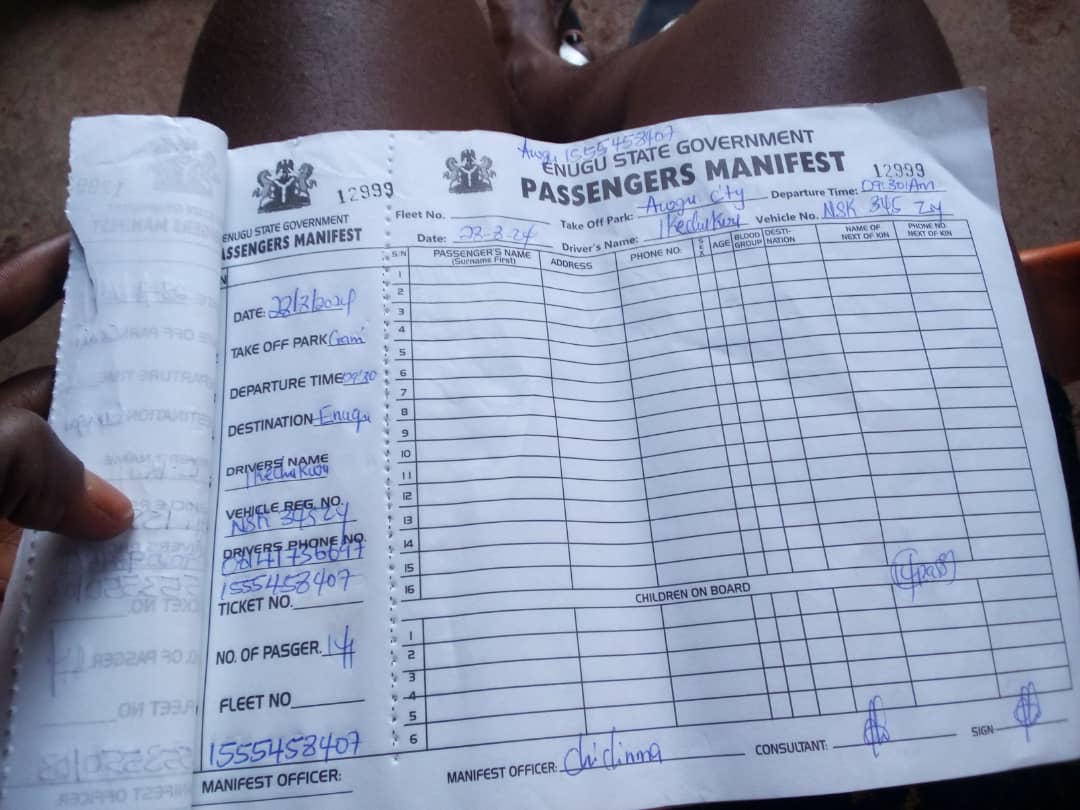 12999
ENUGU STATE GOVERNMENT
PASSENGERS MANIFEST
DATE: 22/3/2024
TAKE OFF PARK
DEPARTURE TIME 09:30
DESTINATION Enugu
DRIVERS' NAME
Ikechukwu
VEHICLE REG. NO.
NSK 345 ZY
DRIVERS PHONE NO.
1555458407
TICKET NO.
NO. OF PASGER. 14
FLEET NO
1555458407
MANIFEST OFFICER:
Awgu 1555458407
ENUGU STATE GOVERNMENT
PASSENGERS MANIFEST
12999
Fleet No. Take Off Park: Awgu City Departure Time: 09:30AM
Date: 22-3-24 Driver's Name: Ikechukwu Vehicle No. NSK 345 ZY
S/N PASSENGER'S NAME (Surname First) ADDRESS PHONE NO. SEX AGE BLOOD GROUP DESTI-NATION NAME OF NEXT OF KIN PHONE NO. NEXT OF KIN
1
2
3
4
5
6
7
8
9
10
11
12
13
14
15
16
CHILDREN ON BOARD
1
2
3
4
5
6
MANIFEST OFFICER: Chidinma CONSULTANT: SIGN